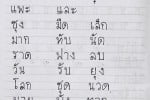 แพะ และ
ซุง มืด เล็ก
มาก ทับ นัด
ราด ฟาง ลบ
วัน รับ ยุง
โลก ชุด นวด